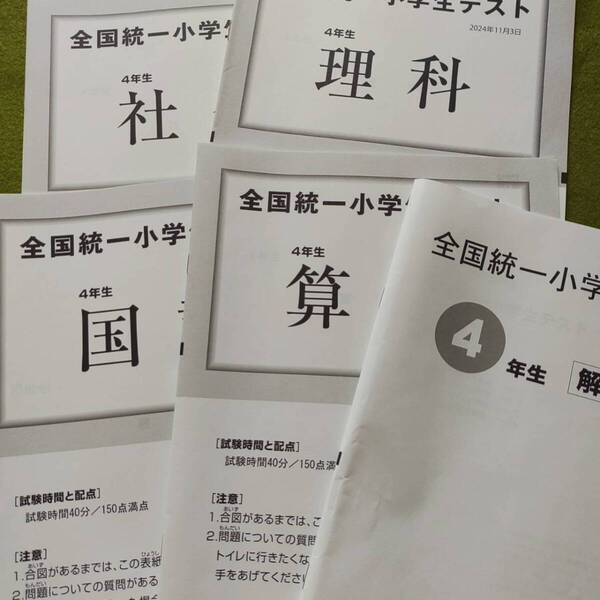 全国統一小学
4年生
社
小学生テスト
2024年11月3日
4年生
理科
全国統一小学
4年生
国
[試験時間と配点]
試験時間40分/150点満点
[注意]
1.合図があるまでは、この表紙
あいず
ひょうし
2.問題についての質問がある
もんだい
全国統一小学
4年生
算
[試験時間と配点]
試験時間40分/150点満
[注意]
1.合図があるまでは、こ
あいず
2.問題についての質問
もんだい
トイレに行きたくな
手をあげてくださ
全国統一小学
4年生
解